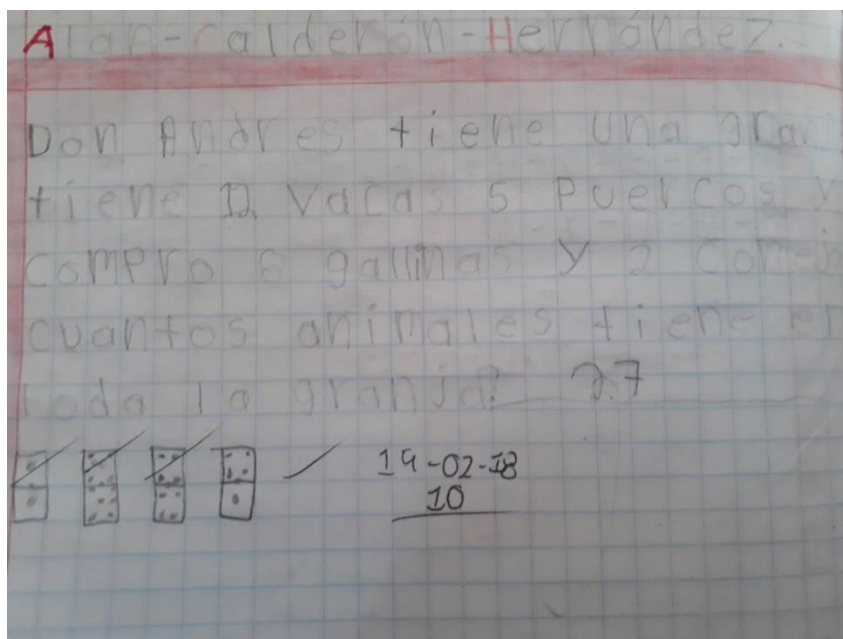 Alan-Calderón-Hernández.
Don Andres tiene una gran
tiene 12 vacas 5 puercos y
compro 6 gallinas y 2 conej
cuantos animales tiene en
toda la granja?
27
19-02-18
10